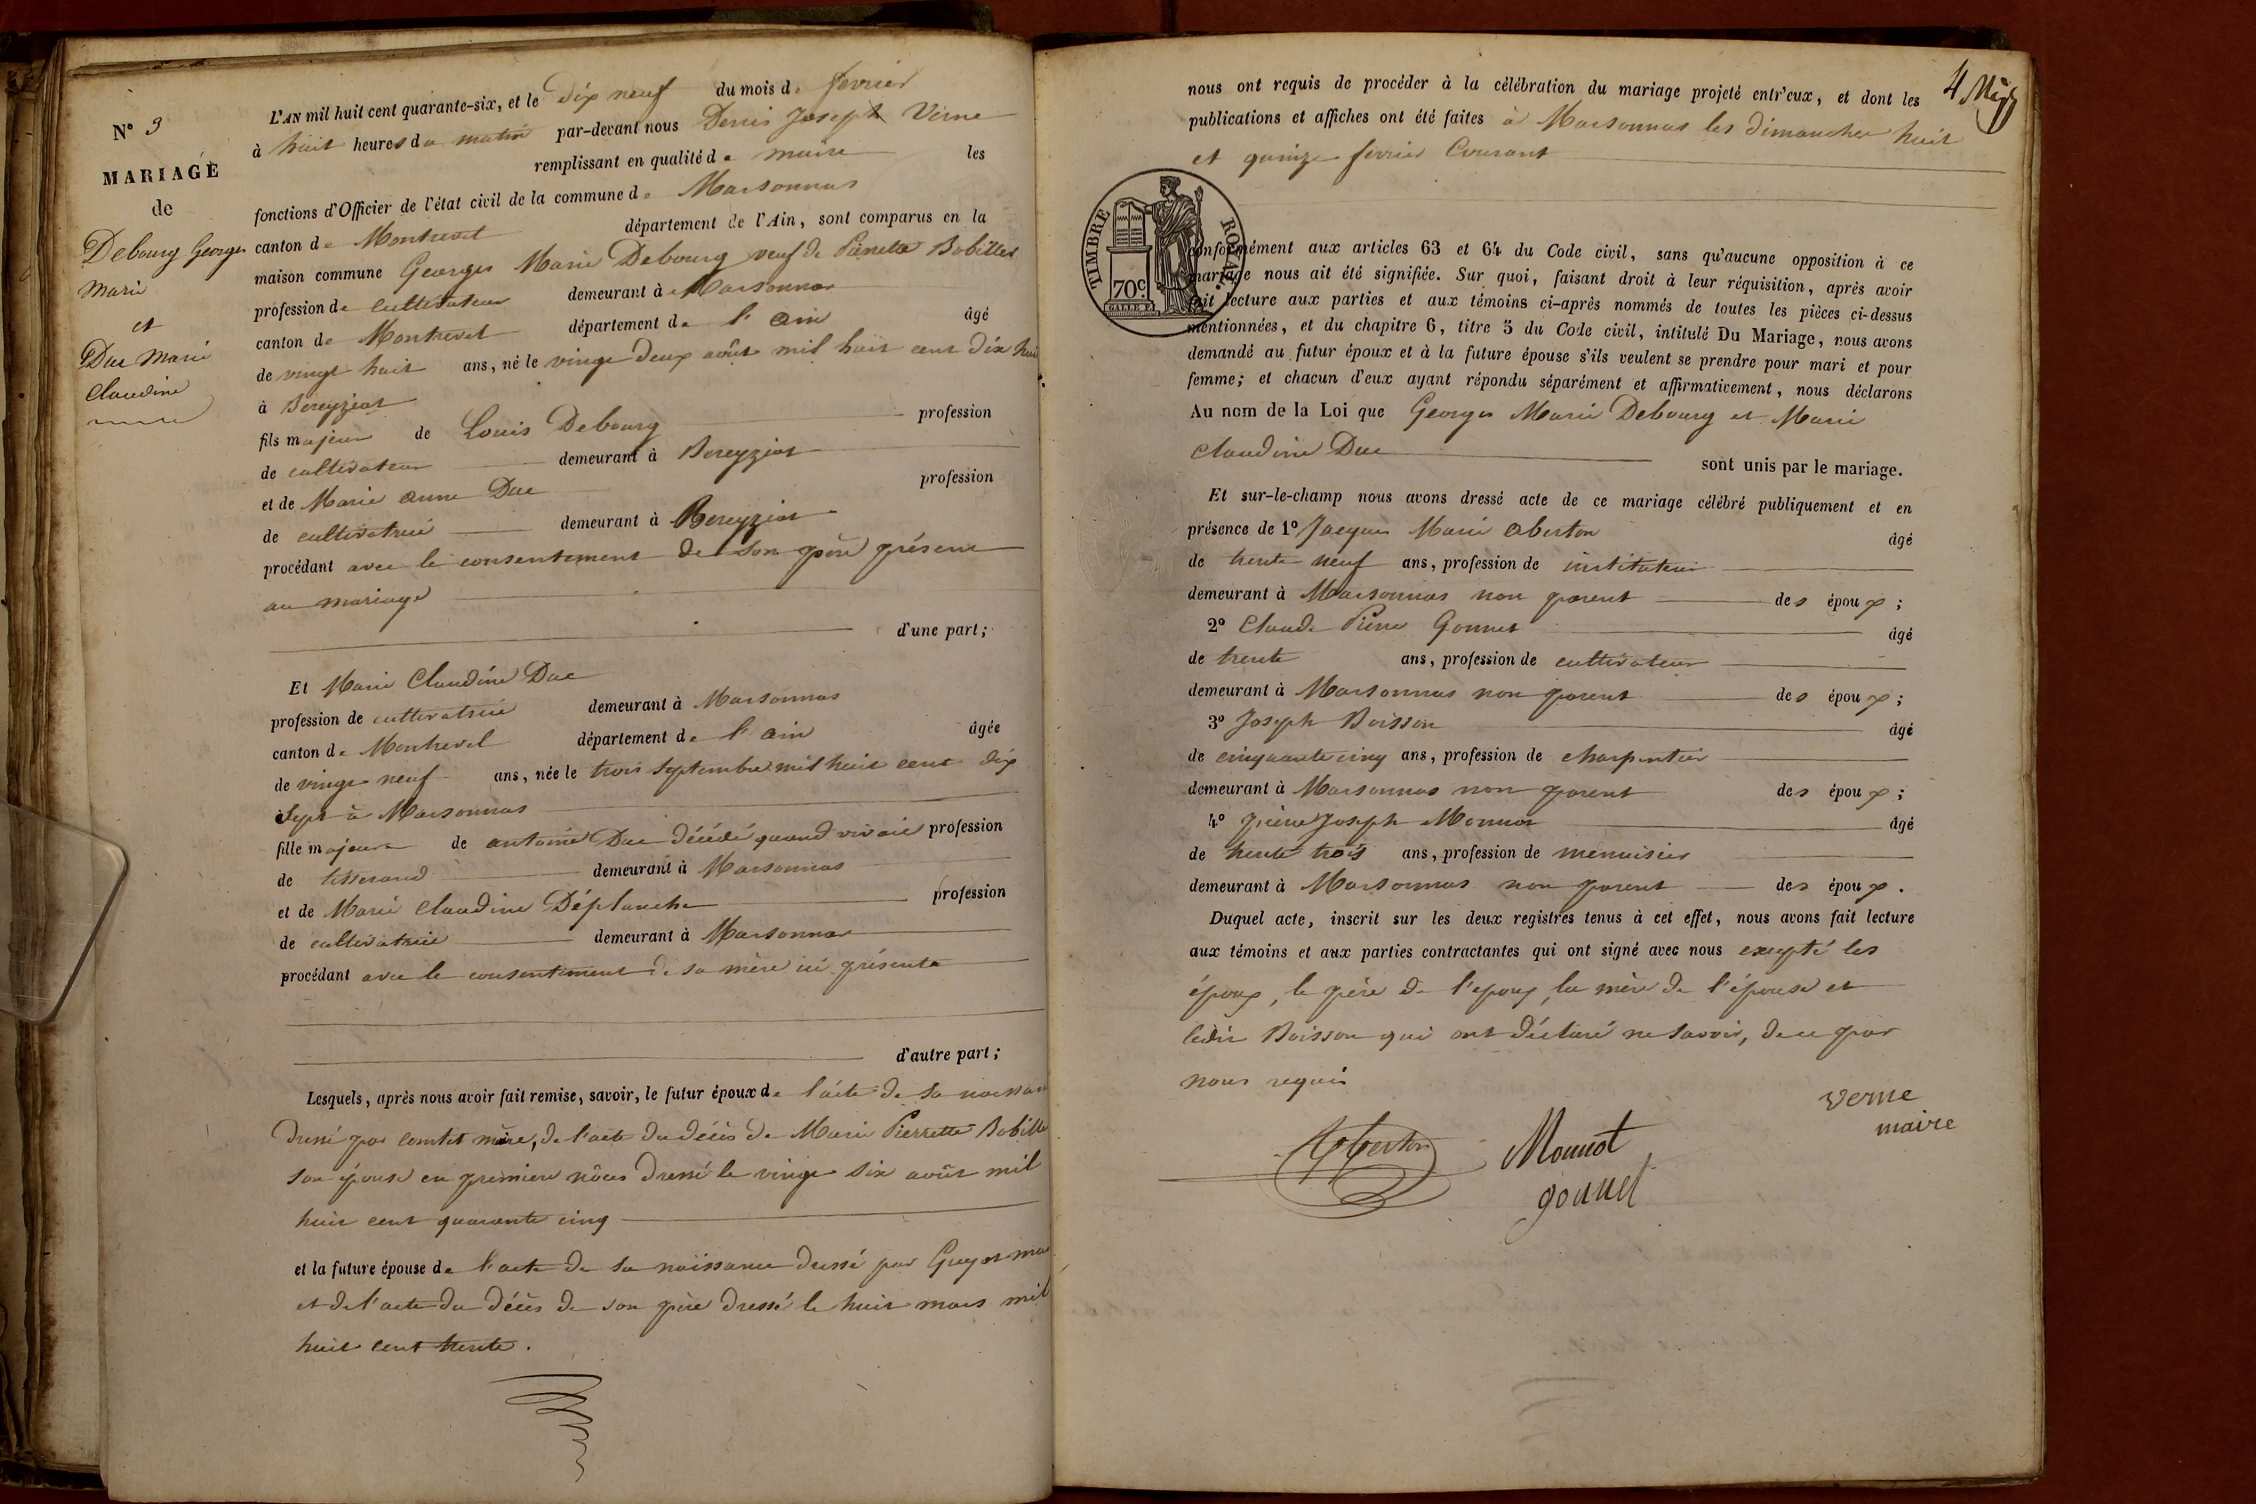 N° 3
MARIAGE
de
Debourg Georges
Marie
et
Duc Marie
Claudine
L'AN mil huit cent quarante-six, et le dix neuf du mois de fevrier
à huit heures du matin par-devant nous Denis Joseph Verne
remplissant en qualité de maire les
fonctions d'Officier de l'état civil de la commune de Marsonnas
canton de Montrevel département de l'Ain, sont comparus en la
maison commune Georges Marie Debourg veuf de Pierrette Bobillet
profession de cultivateur demeurant à Marsonnas
canton de Montrevel département de l'ain âgé
de vingt huit ans, né le vingt deux août mil huit cent dix huit
à Bereyziat
fils majeur de Louis Debourg profession
de cultivateur demeurant à Bereyziat
et de Marie anne Duc profession
de cultivatrice demeurant à Bereyziat
procédant avec le consentement de son père présent
au mariage
d'une part;
Et Marie Claudine Duc
profession de cultivatrice demeurant à Marsonnas
canton de Montrevel département de l'ain âgée
de vingt neuf ans, née le trois septembre mil huit cent dix
sept à Marsonnas
fille majeure de antoine Duc décédé quand vivait profession
de tisserand demeurant à Marsonnas
et de Marie Claudine Déplanche profession
de cultivatrice demeurant à Marsonnas
procédant avec le consentement de sa mère ici présente
d'autre part;
Lesquels, après nous avoir fait remise, savoir, le futur époux de l'acte de sa naissance
dressé par comtet maire, de l'acte du décès de Marie Pierrette Bobillet
son épouse en premiere nôces dressé le vingt six août mil
huit cent quarante cinq
et la future épouse de l'acte de sa naissance dressé par Guyot maire
et de l'acte du décès de son père dressé le huit mars mil
huit cent trente.
4
nous ont requis de procéder à la célébration du mariage projeté entr'eux, et dont les
publications et affiches ont été faites à Marsonnas les dimanches huit
et quinze fevrier Courant
TIMBRE ROYAL
70 c.
conformément aux articles 63 et 64 du Code civil, sans qu'aucune opposition à ce
mariage nous ait été signifiée. Sur quoi, faisant droit à leur réquisition, après avoir
fait lecture aux parties et aux témoins ci-après nommés de toutes les pièces ci-dessus
mentionnées, et du chapitre 6, titre 5 du Code civil, intitulé Du Mariage, nous avons
demandé au futur époux et à la future épouse s'ils veulent se prendre pour mari et pour
femme; et chacun d'eux ayant répondu séparément et affirmativement, nous déclarons
Au nom de la Loi que Georges Marie Debourg et Marie
Claudine Duc sont unis par le mariage.
Et sur-le-champ nous avons dressé acte de ce mariage célébré publiquement et en
présence de 1° Jacques Marie Oberton âgé
de trente neuf ans, profession de instituteur
demeurant à Marsonnas non parent des époux;
2° Claude Pierre Gonnet âgé
de trente ans, profession de cultivateur
demeurant à Marsonnas non parent des époux;
3° Joseph Boisson âgé
de cinquante cinq ans, profession de charpentier
demeurant à Marsonnas non parent des époux;
4° pierre Joseph Monnot âgé
de trente trois ans, profession de menuisier
demeurant à Marsonnas non parent des époux.
Duquel acte, inscrit sur les deux registres tenus à cet effet, nous avons fait lecture
aux témoins et aux parties contractantes qui ont signé avec nous excepté les
époux, le père de l'epoux, la mère de l'épouse et
ledit Boisson qui ont déclaré ne savoir, de ce par
nous requis
Verne
maire
Oberton
Monnot
gonnet